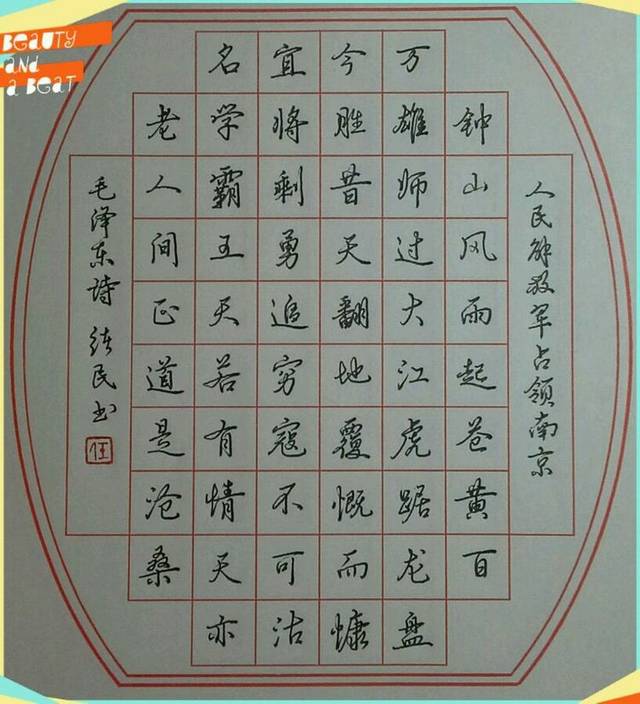 BEAUTY
AND
A BEAT
人民解放军占领南京
钟山风雨起苍黄百
万雄师过大江虎踞龙盘
今胜昔天翻地覆慨而慷
宜将剩勇追穷寇不可沽
名学霸王天若有情天亦
老人间正道是沧桑
毛泽东诗 民书